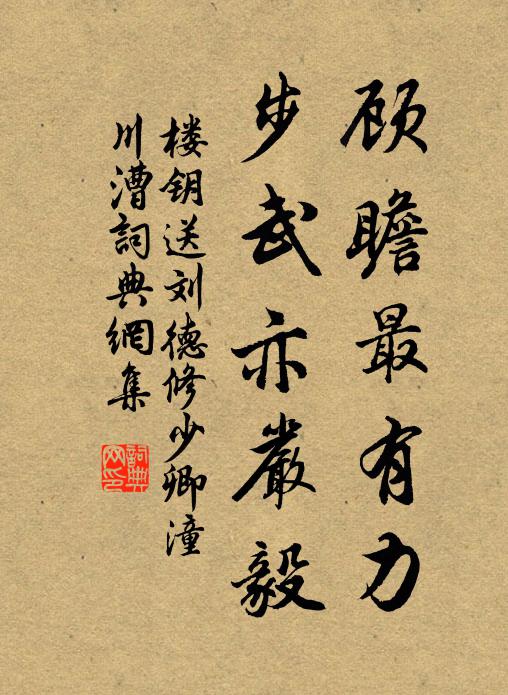 顾瞻最有力
步武亦嚴毅
楼钥送刘德修少卿潼
川漕詞典網集
詞典
网印